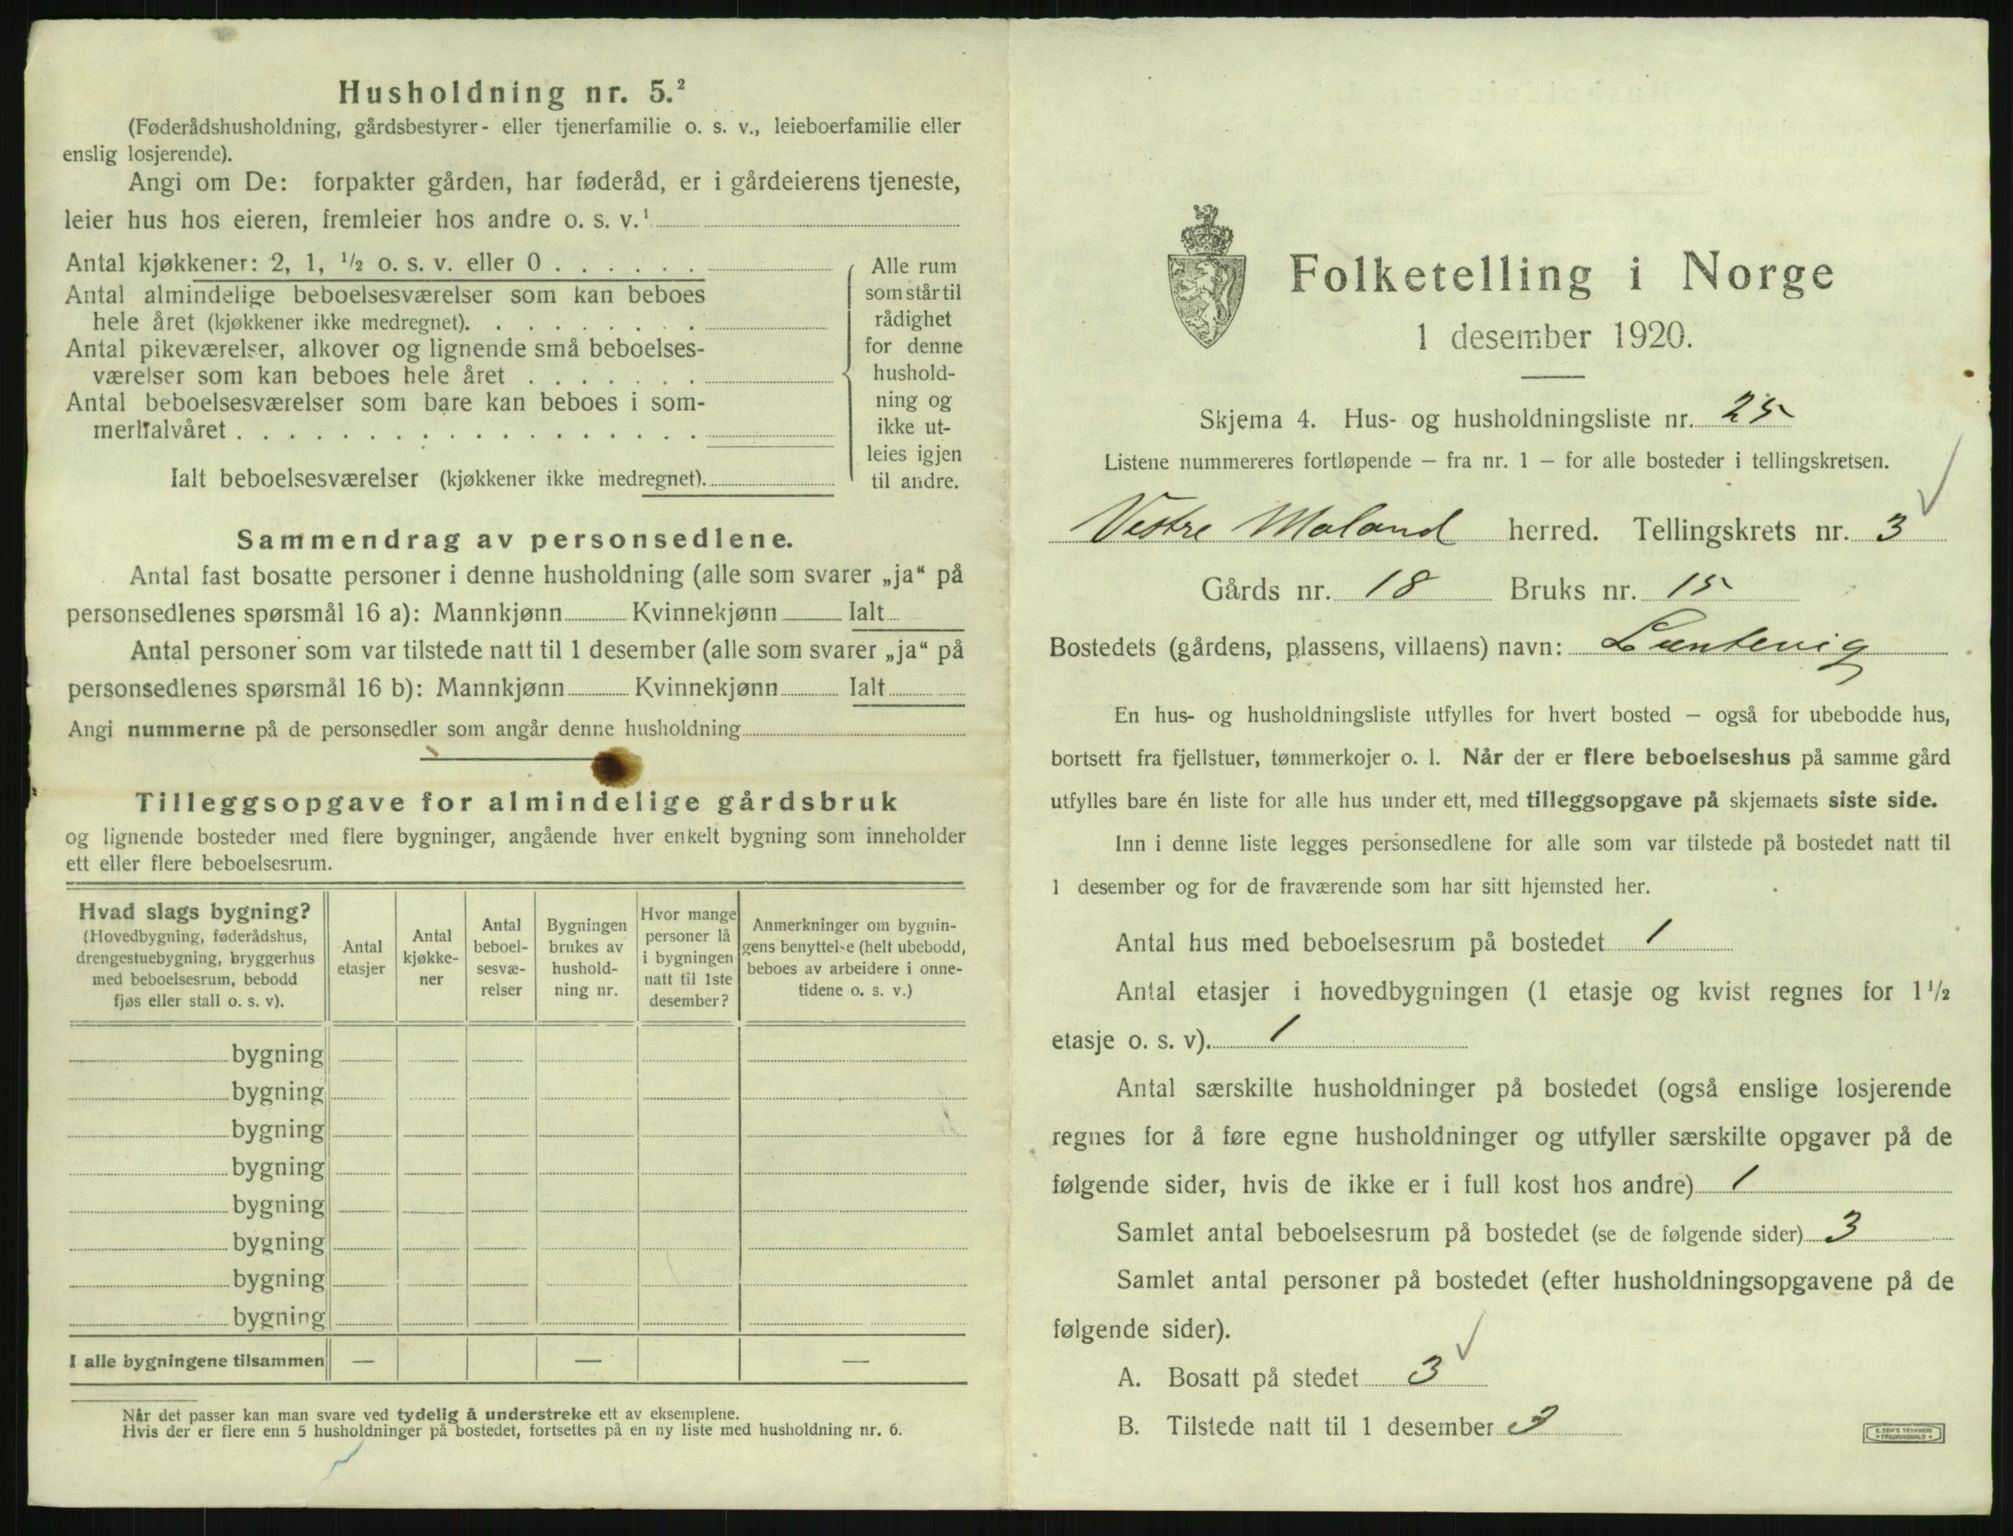 Husholdning nr. 5.²
(Føderådshusholdning, gårdsbestyrer- eller tjenerfamilie o. s. v., leieboerfamilie eller
enslig losjerende).
Angi om De: forpakter gården, har føderåd, er i gårdeierens tjeneste,
leier hus hos eieren, fremleier hos andre o. s. v.¹
Antal kjøkkener: 2, 1, ½ o. s. v. eller 0
Antal almindelige beboelsesværelser som kan beboes
hele året (kjøkkener ikke medregnet).
Antal pikeværelser, alkover og lignende små beboelses-
værelser som kan beboes hele året
Antal beboelsesværelser som bare kan beboes i som-
merhalvåret
Ialt beboelsesværelser (kjøkkener ikke medregnet).
Alle rum
som står til
rådighet
for denne
hushold-
ning og
ikke ut-
leies igjen
til andre.
Sammendrag av personsedlene.
Antal fast bosatte personer i denne husholdning (alle som svarer „ja“ på
personsedlenes spørsmål 16 a): Mannkjønn Kvinnekjønn Ialt
Antal personer som var tilstede natt til 1 desember (alle som svarer „ja“ på
personsedlenes spørsmål 16 b): Mannkjønn Kvinnekjønn Ialt
Angi nummerne på de personsedler som angår denne husholdning
Tilleggsopgave for almindelige gårdsbruk
og lignende bosteder med flere bygninger, angående hver enkelt bygning som inneholder
ett eller flere beboelsesrum.
Hvad slags bygning?
(Hovedbygning, føderådshus,
drengestuebygning, bryggerhus
med beboelsesrum, bebodd
fjøs eller stall o. s. v).
Antal
etasjer
Antal
kjøkke-
ner
Antal
beboel-
sesvæ-
relser
Bygningen
brukes av
hushold-
ning nr.
Hvor mange
personer lå
i bygningen
natt til 1ste
desember?
Anmerkninger om bygnin-
gens benyttelse (helt ubebodd,
beboes av arbeidere i onne-
tidene o. s. v.)
bygning
bygning
bygning
bygning
bygning
bygning
bygning
bygning
I alle bygningene tilsammen — — —
Når det passer kan man svare ved tydelig å understreke ett av eksemplene.
Hvis der er flere enn 5 husholdninger på bostedet, fortsettes på en ny liste med husholdning nr. 6.
Folketelling i Norge
1 desember 1920.
Skjema 4. Hus- og husholdningsliste nr. 25
Listene nummereres fortløpende – fra nr. 1 – for alle bosteder i tellingskretsen.
Vestre Moland herred. Tellingskrets nr. 3
Gårds nr. 18 Bruks nr. 15
Bostedets (gårdens, plassens, villaens) navn:
En hus- og husholdningsliste utfylles for hvert bosted – også for ubebodde hus,
bortsett fra fjellstuer, tømmerkojer o. l. Når der er flere beboelseshus på samme gård
utfylles bare én liste for alle hus under ett, med tilleggsopgave på skjemaets siste side.
Inn i denne liste legges personsedlene for alle som var tilstede på bostedet natt til
1 desember og for de fraværende som har sitt hjemsted her.
Antal hus med beboelsesrum på bostedet 1
Antal etasjer i hovedbygningen (1 etasje og kvist regnes for 1½
etasje o. s. v). 1
Antal særskilte husholdninger på bostedet (også enslige losjerende
regnes for å føre egne husholdninger og utfyller særskilte opgaver på de
følgende sider, hvis de ikke er i full kost hos andre) 1
Samlet antal beboelsesrum på bostedet (se de følgende sider) 3
Samlet antal personer på bostedet (efter husholdningsopgavene på de
følgende sider).
A. Bosatt på stedet 3
B. Tilstede natt til 1 desember 3